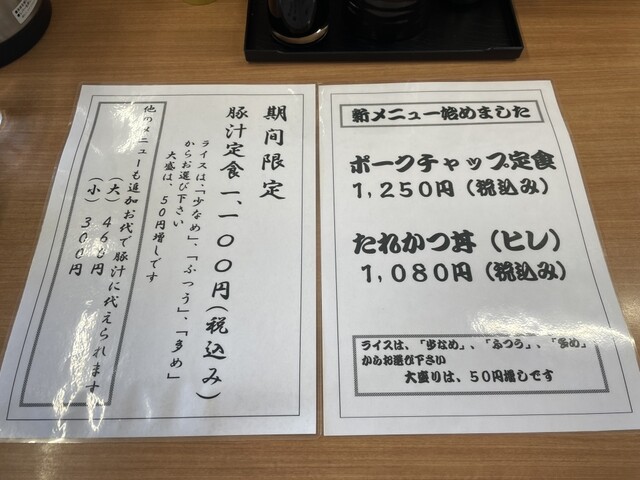 期間限定
豚汁定食一、一〇〇円(税込み)
ライスは、「少なめ」、「ふつう」、「多め」
からお選び下さい
大盛は、５０円増しです
他のメニューも追加お代で豚汁に代えられます
(大)４６０円
(小)３００円
新メニュー始めました
ポークチャップ定食
１,２５０円（税込み）
たれかつ丼（ヒレ）
１,０８０円（税込み）
ライスは、「少なめ」、「ふつう」、「多め」
からお選び下さい
大盛りは、５０円増しです